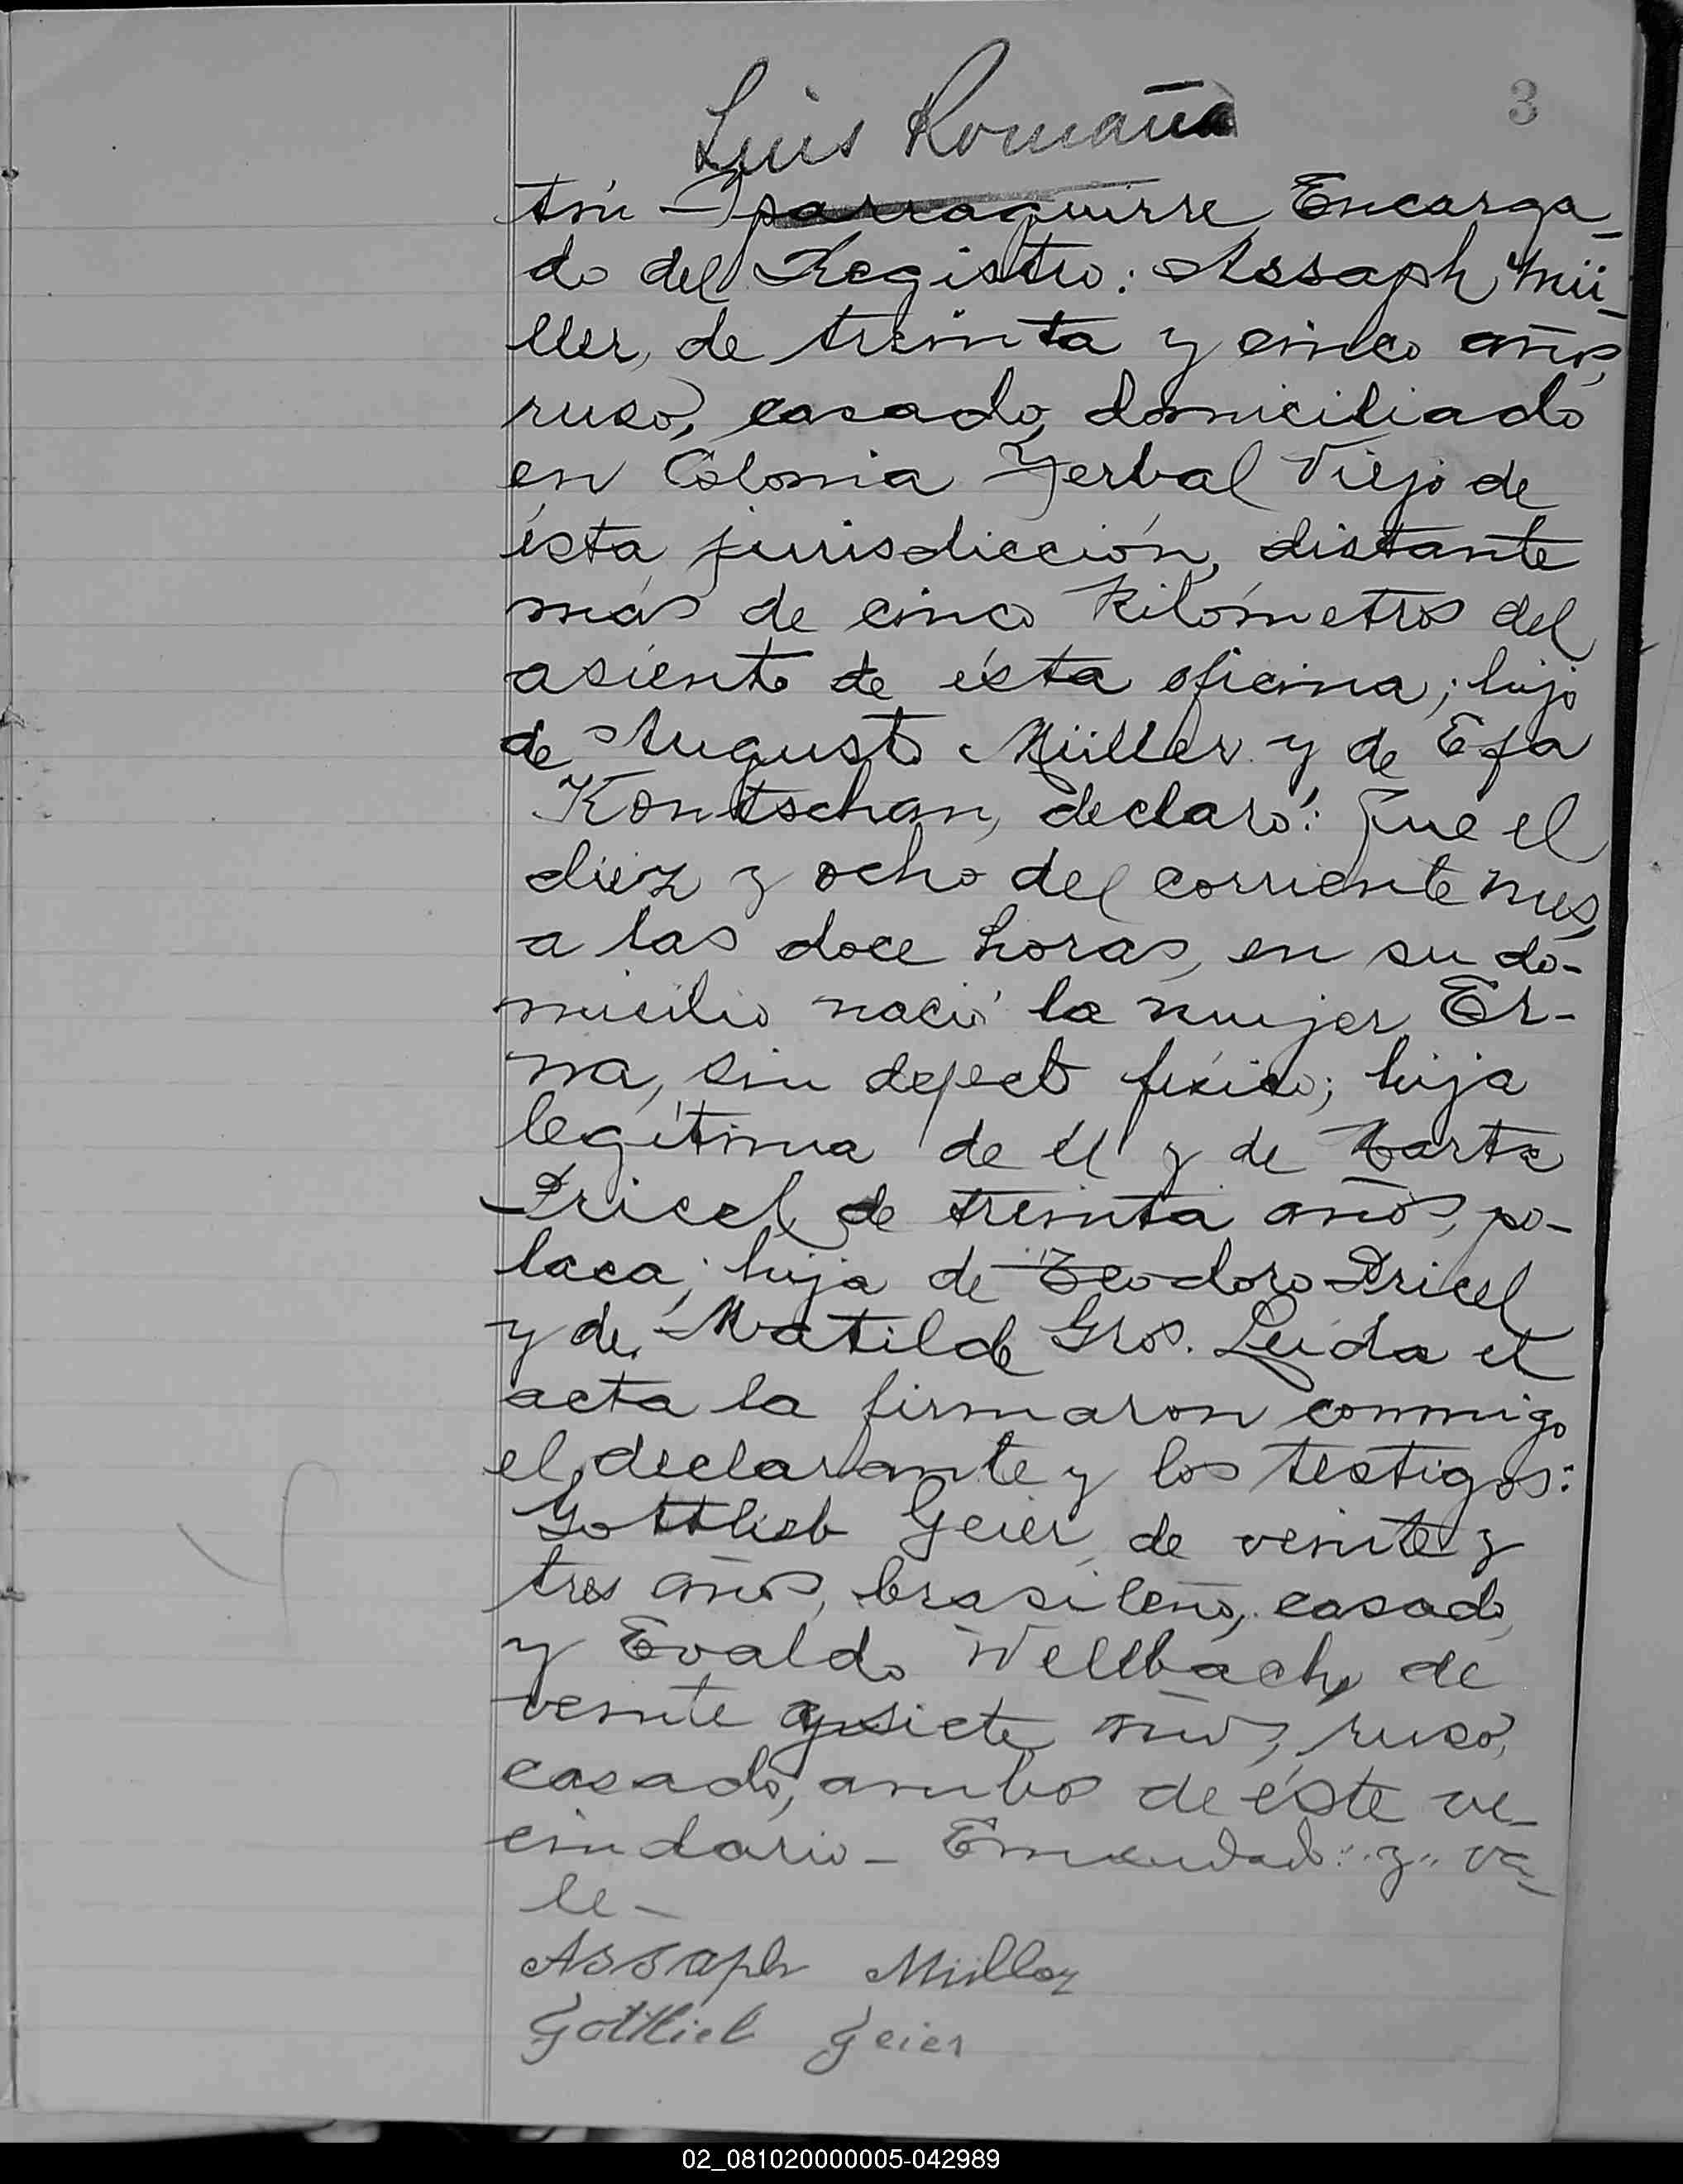 3
Luis Romaña
tín Yparraguirre, Encarga-
do del Registro: Assaph Mü-
ller, de treinta y cinco años,
ruso, casado, domiciliado
en Colonia Yerbal Viejo de
ésta jurisdicción, distante
más de cinco Kilómetros del
asiento de ésta oficina; hijo
de Augusto Müller y de Efa
Kontschan, declaró: Que el
diez y ocho del corriente mes,
a las doce horas, en su do-
micilio nació la mujer Er-
na, sin defecto físico; hija
legítima de él y de Marta
Pricel, de treinta años, po-
laca; hija de Teodoro Pricel
y de Matilde Gros. Leída el
acta la firmaron conmigo
el declarante y los testigos:
Gottlieb Geier, de veinte y
tres años, brasileño, casado,
y Evaldo Wellbach, de
veinte y siete años, ruso,
casado, ambos de éste ve-
cindario - Enmendado: "y" va-
le -
Assaph Müller
Gottlieb Geier
02_081020000005-042989